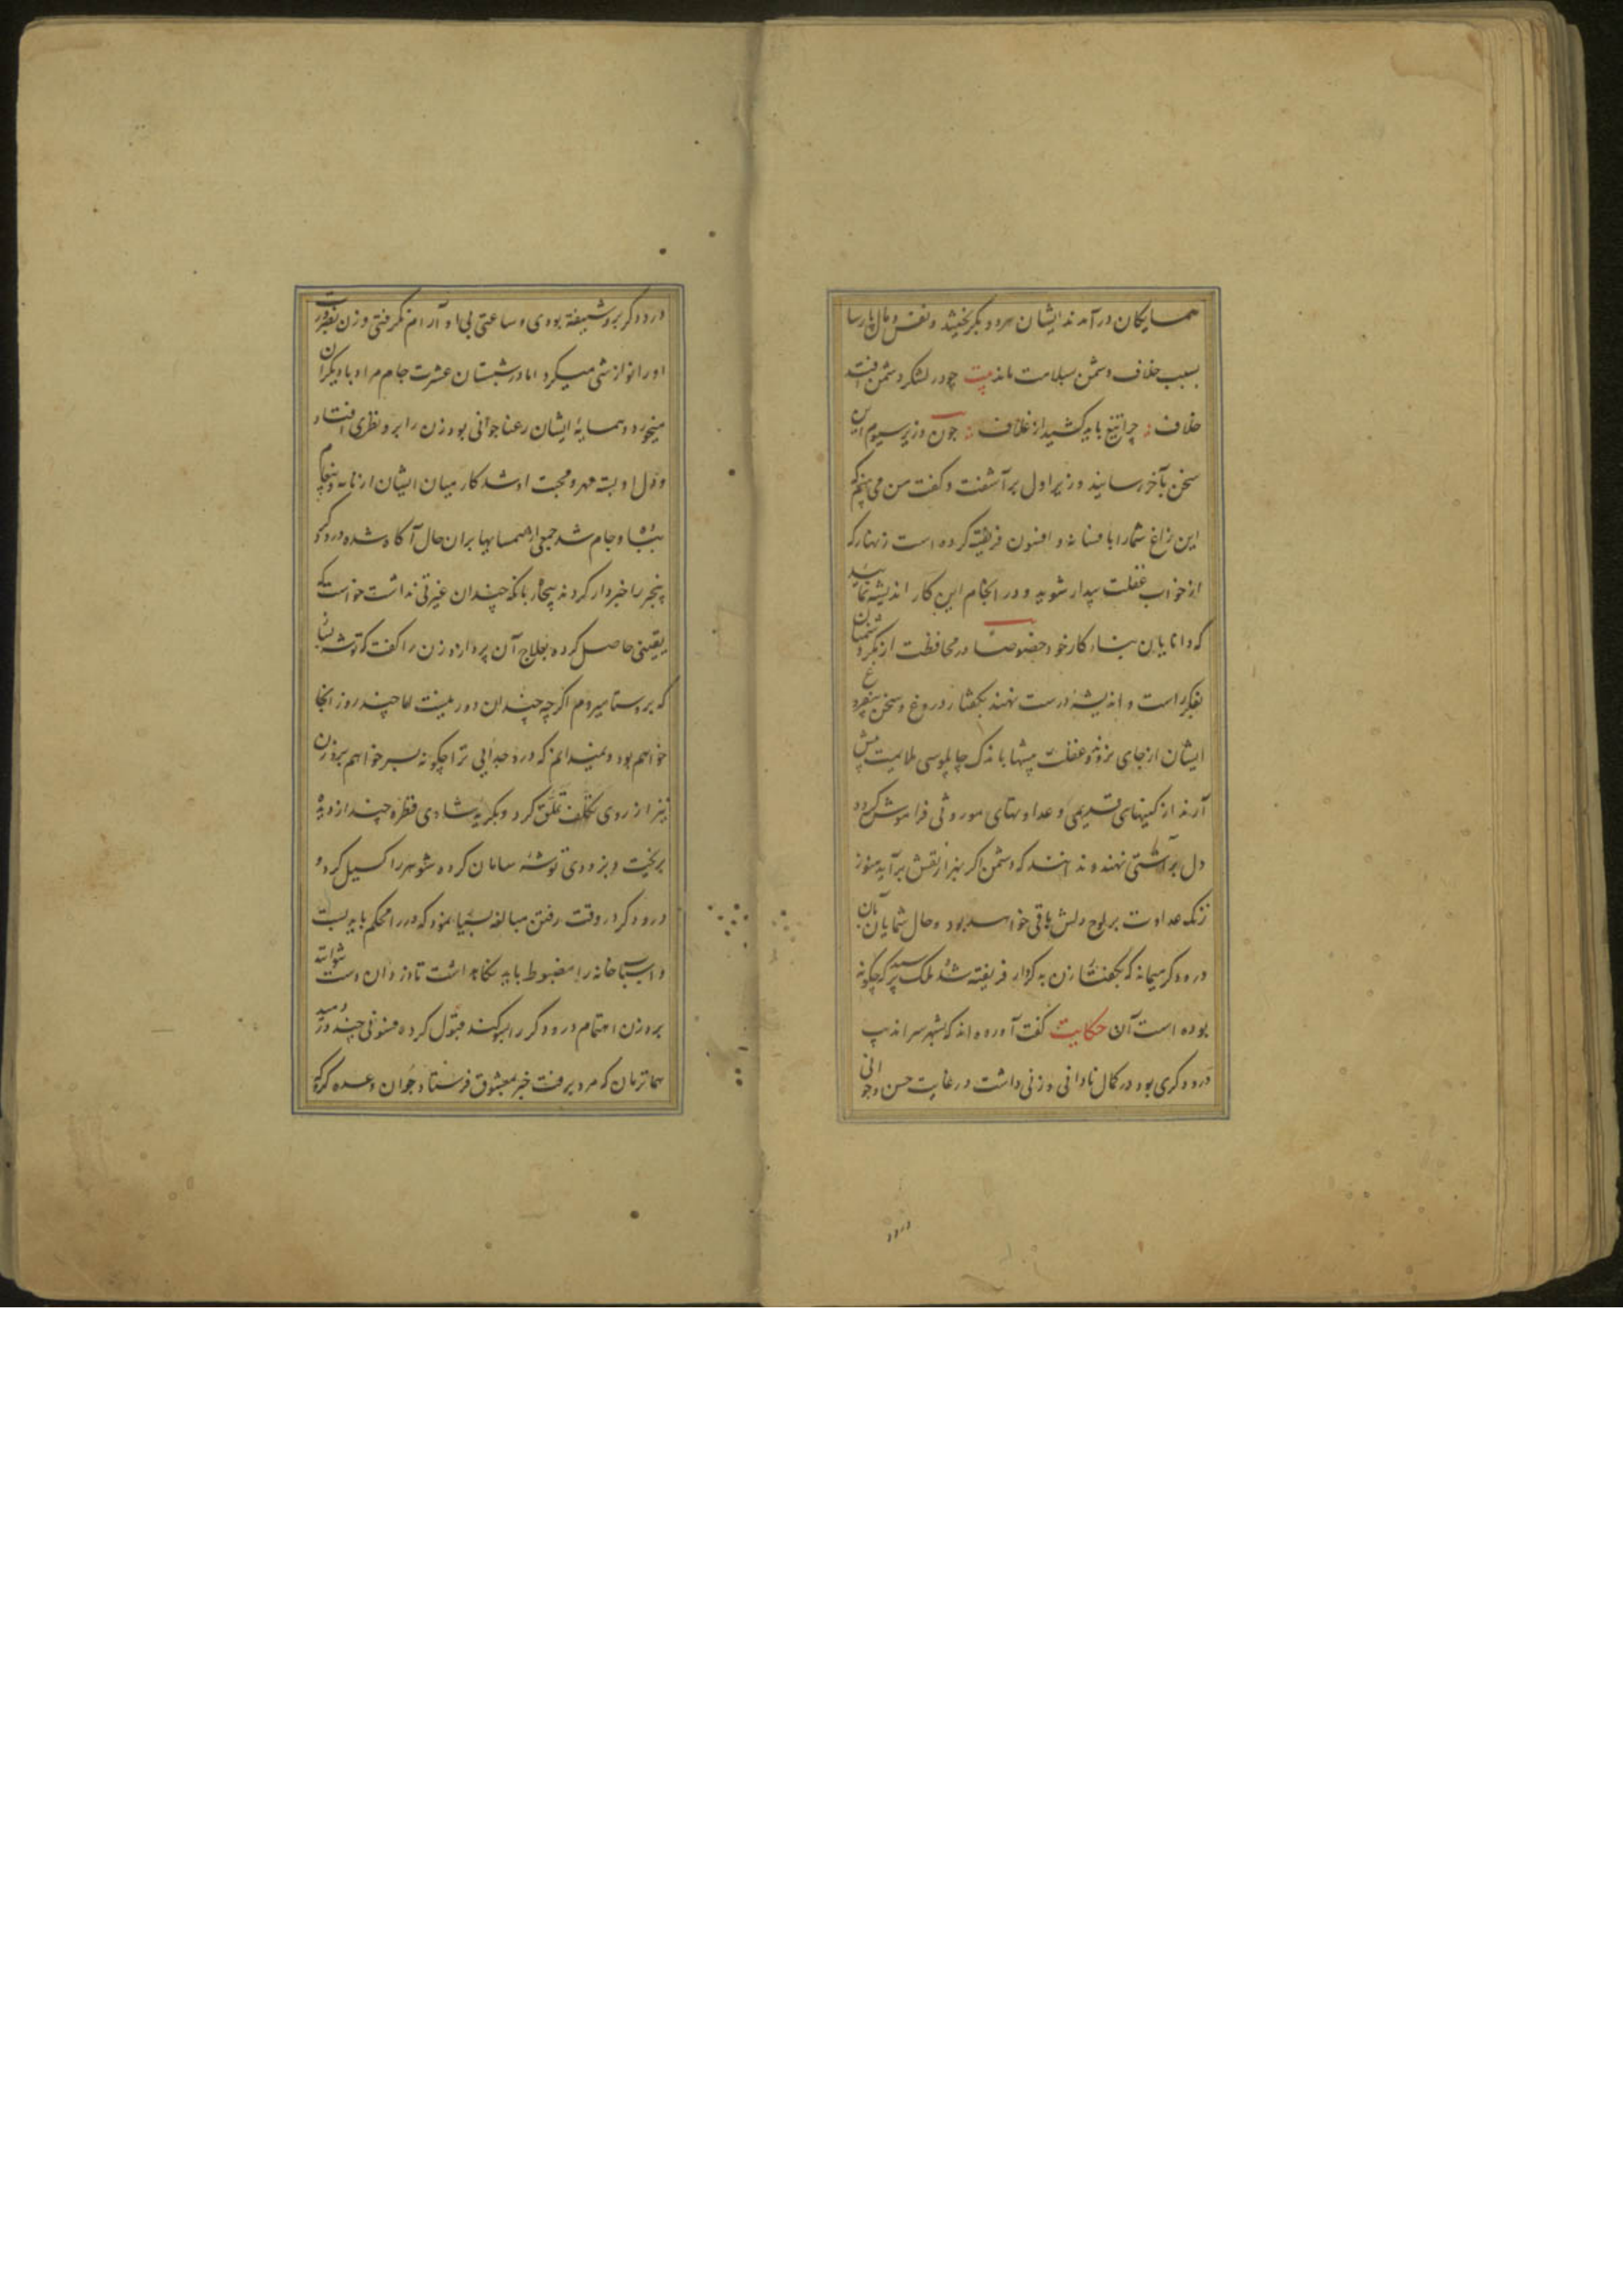 همسایکان درآمدند ایشان هر دو بکریختند و نفس و مال پارسا
بسبب خلاف دشمن بسلامت ماند بیت چو در لشکر دشمن افتد
خلاف چرا تیغ باید کشید از غلاف چون وزیر سیوم این
سخن بآخر رسانید وزیر اول برآشفت و کفت من می بینم که
این زاغ شمارا بافسانه و افسون فریفته کرده است زنهار که
از خواب غفلت بیدار شوید و در انجام این کار اندیشه نمایید
که دانایان بناء کار خود خصوصا در محافظت از مکر دشمنان
بفکر راست و اندیشه درست نهند بکفتار دروغ و سخن بیفروغ
ایشان از جای نروند و غفلت پیشها باندک چاپلوسی ملایمت پیش
آرند از کینهای قدیمی و عداوتهای موروثی فراموش کرده
دل بر آشتی نهند و ندانند که دشمن اکر بهزار نقش برآید هنوز
زنک عداوت بر لوح دلش باقی خواهد بود و حال شما بآن
درودکر میماند که بکفتار زن بدکردار فریفته شد ملک پرسید که چکونه
بوده است آن حکایت کفت آورده اند که بشهر سراندیب
درودکری بود در کمال نادانی و زنی داشت در غایت حسن و جوانی
درود
درودکر برو شیفته بودی و ساعتی بی او آرام نکرفتی و زن بضرورت
اورا نوازشی میکرد اما در شبستان عشرت جام مراد با دیکران
میخورد و در همسایهٔ ایشان رعنا جوانی بود زن را برو نظری افتاد
و دل او بسته مهر و محبت او شد کار میان ایشان از نامه و پیغام
بشا و جام شد جمعی از همسایها بران حال آکاه شده درودکر
را خبردار کردند بیچاره بانکه چندان غیرتی نداشت خواست که
یقینی حاصل کرده بعلاج آن پردازد زن را کفت که توشه بساز
که بروستا میروم اکرچه چندان دور نیست اما چند روز آنجا
خواهم بود و نمیدانم که درد جدایی ترا چکونه بسر خواهم برد زن
نیز از روی تکلف تملق کرد و بکریهٔ شادی قطرهٔ چند از دیده
بریخت و بزودی توشه سامان کرده شوهر را کسیل کرد و
درودکر در وقت رفتن مبالغه بسیار نمود که در را محکم باید بست
و اسباب خانه را مضبوط باید نکاهداشت تا دزدان دست
برد زن اهتمام درودکر را قبول کرده فسونی چند دروی دمید
همانزمان که مرد برفت خبر بمعشوق فرستاد و جوان وعده کرد که